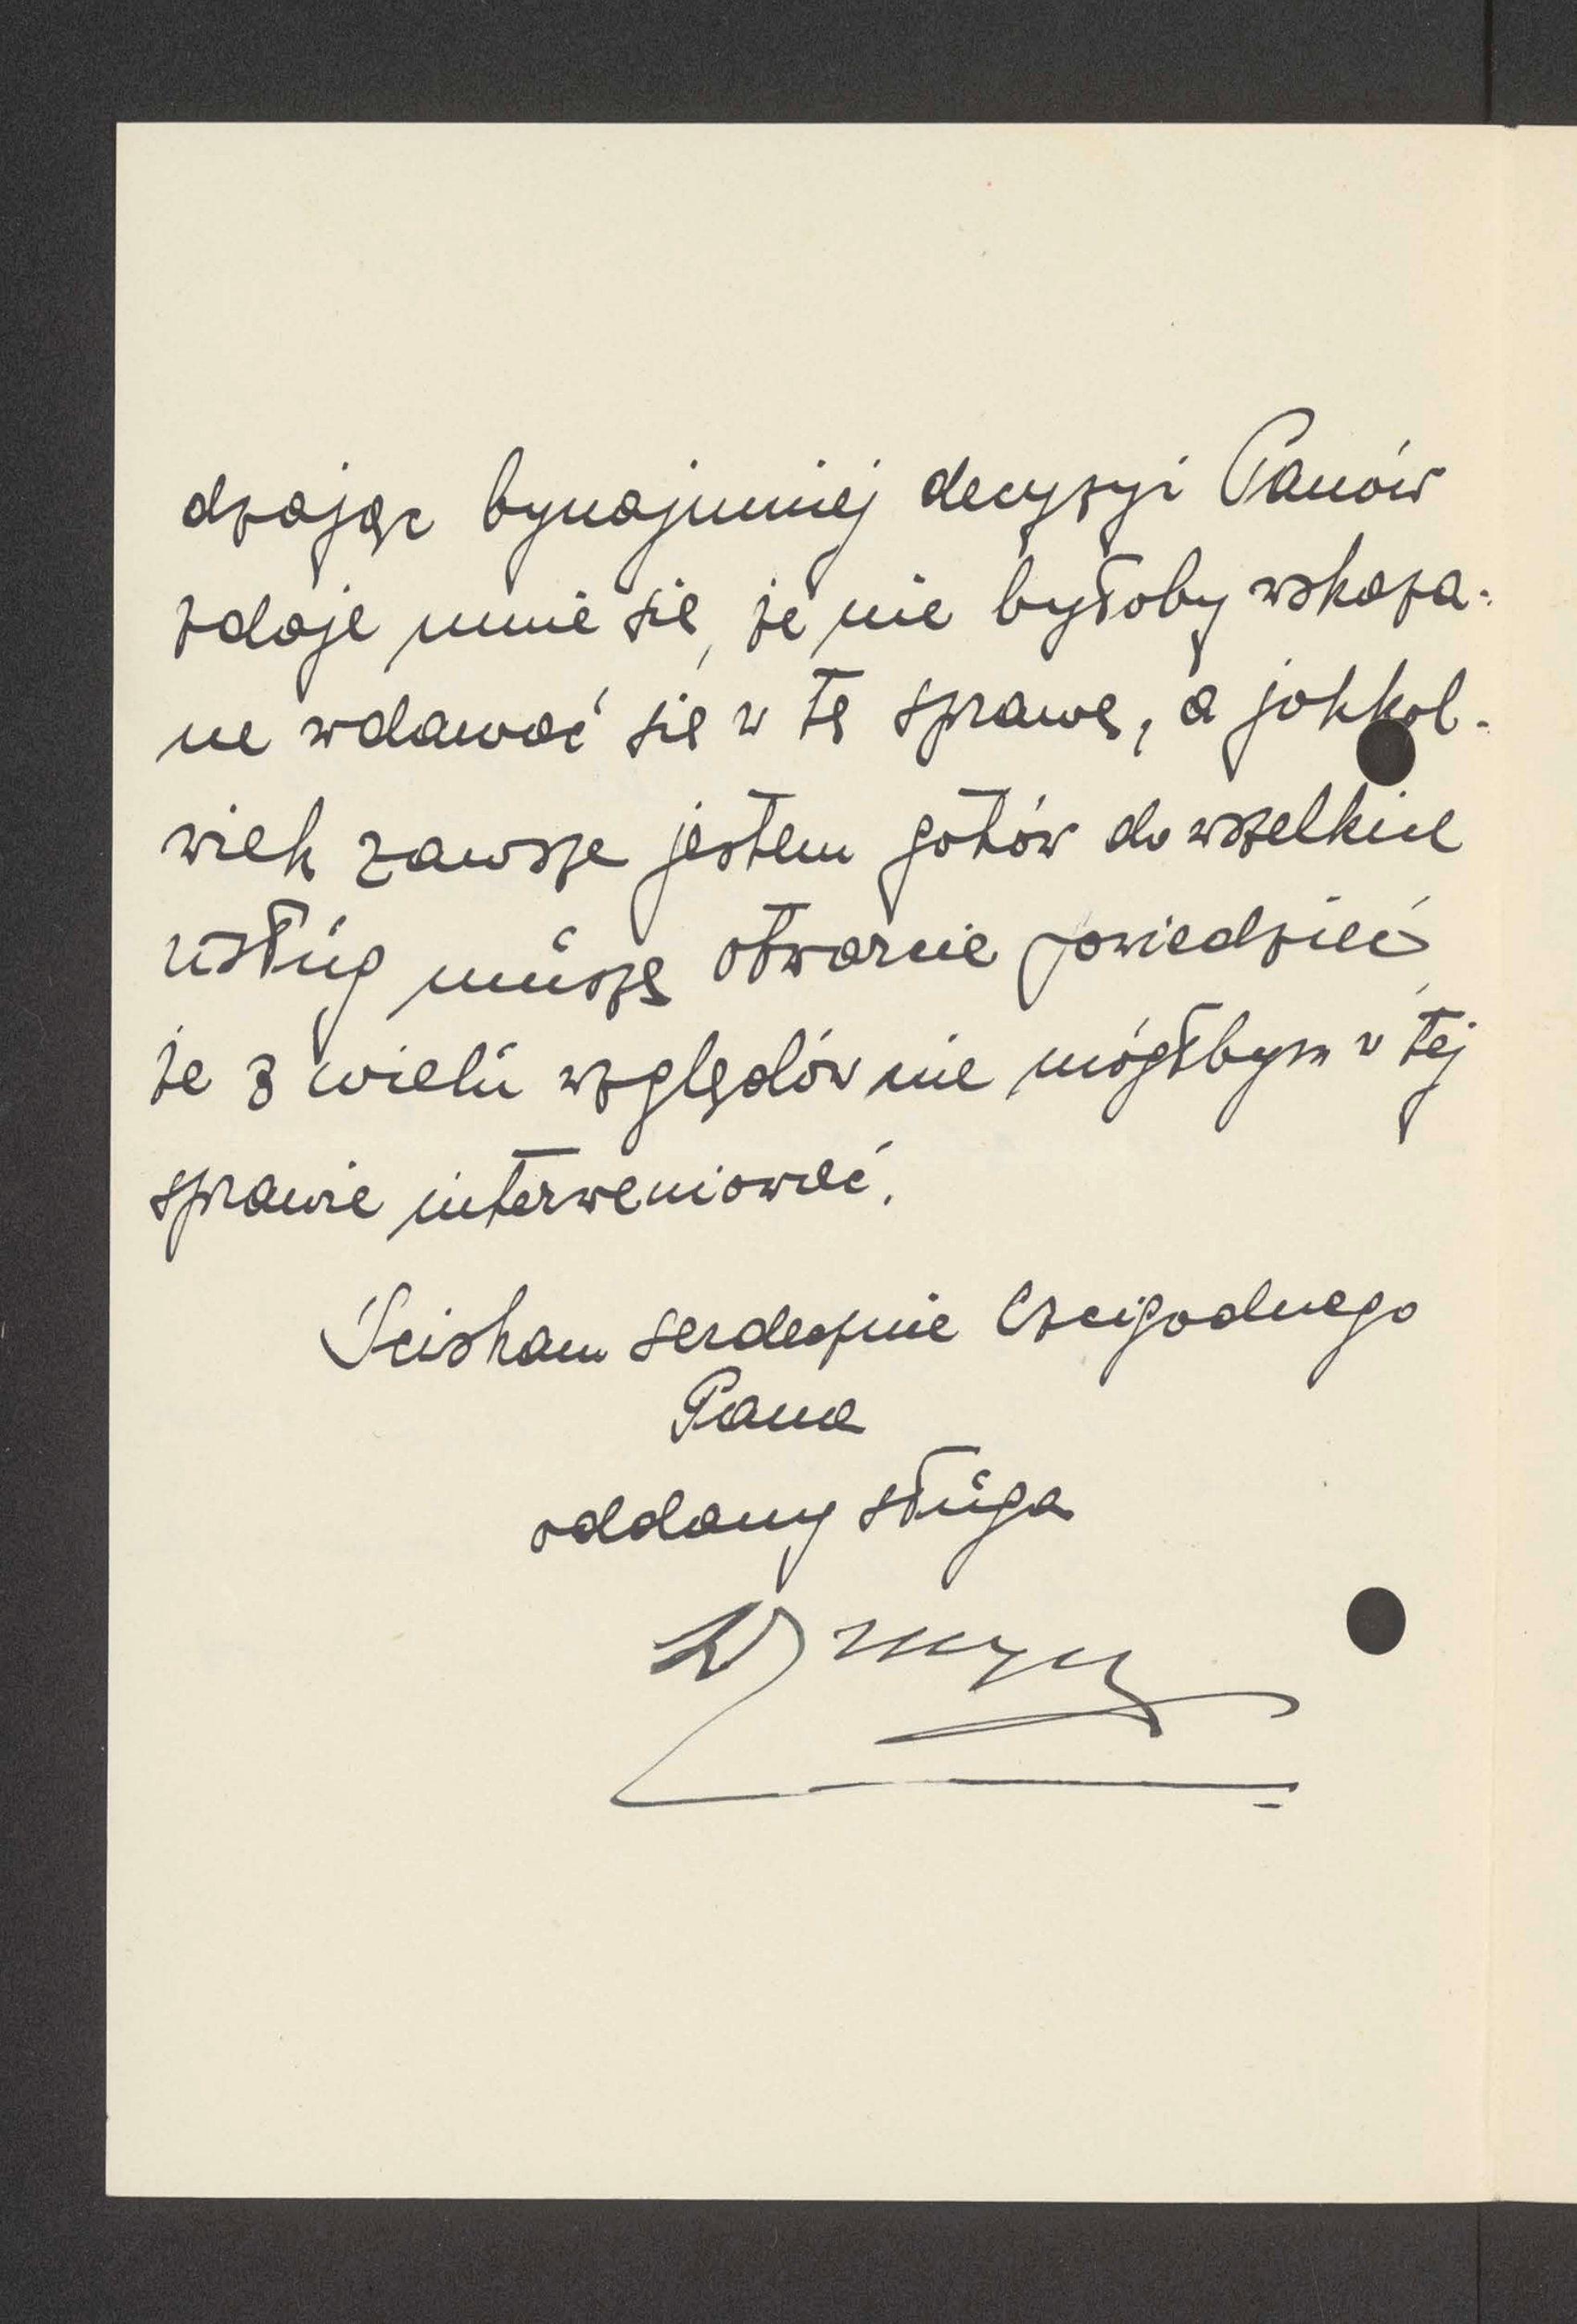 dzając bynajmniej decyzyi Panów
zdaje mnie się, że nie byłoby wskaza-
ne wdawać się w tę sprawę, a jakkol-
wiek zawsze jestem gotów do wszelkich
usług muszę otwarcie powiedzieć,
że z wielu względów nie mógłbym w tej
sprawie interweniować.
Ściskam serdecznie Czcigodnego
Pana
oddany sługa